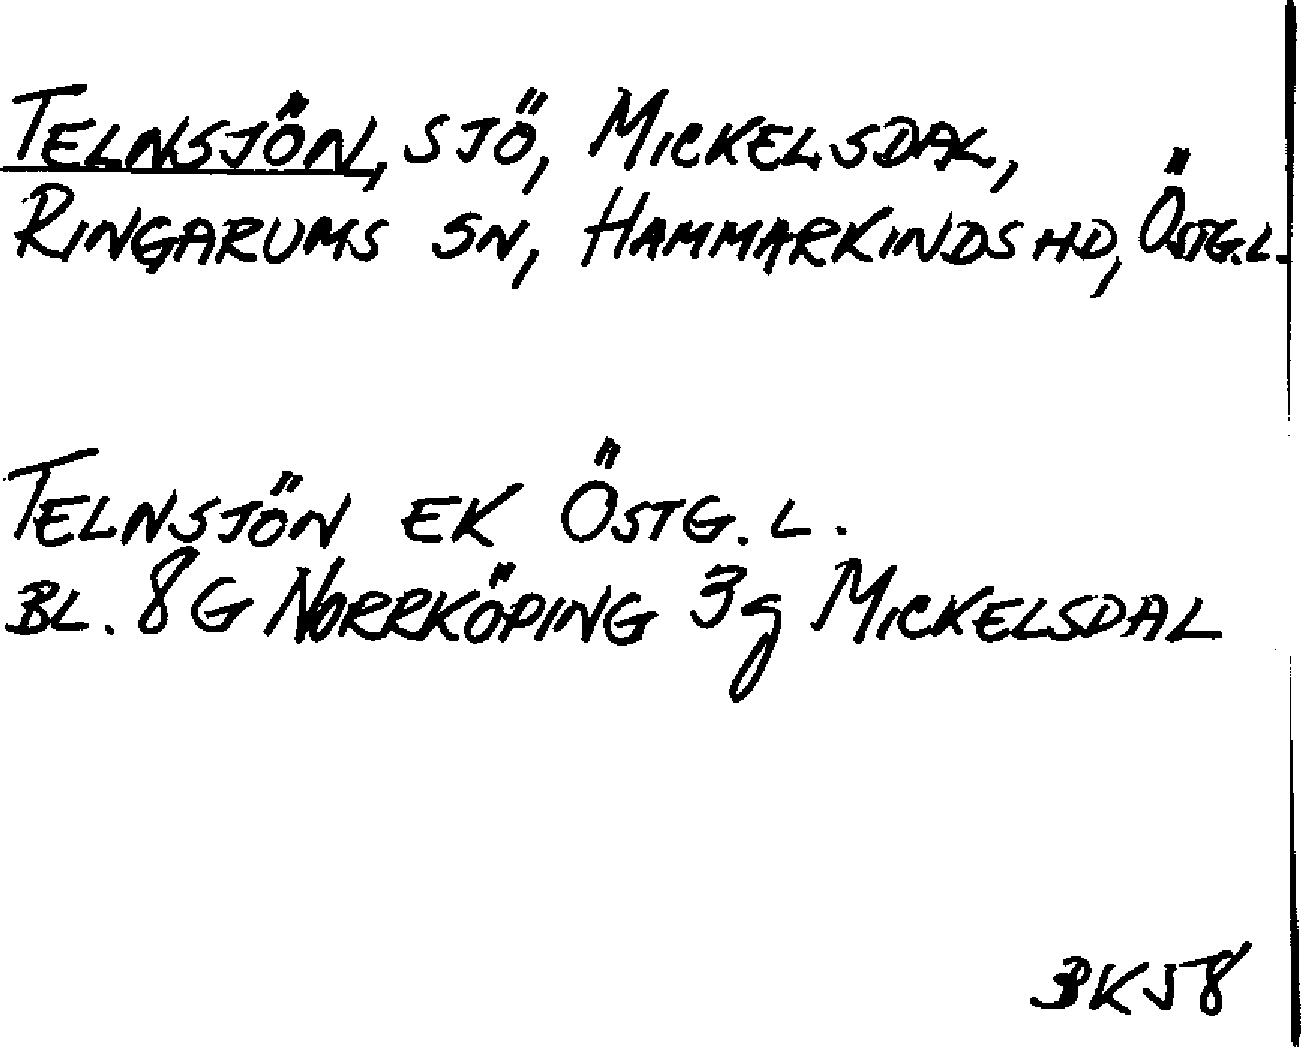 TELNSJÖN, SJÖ, MICKELSDAL,
RINGARUMS SN, HAMMARKINDS HD, ÖSTG.L.
TELNSJÖN EK ÖSTG. L.
BL. 8G NORRKÖPING 3g MICKELSDAL